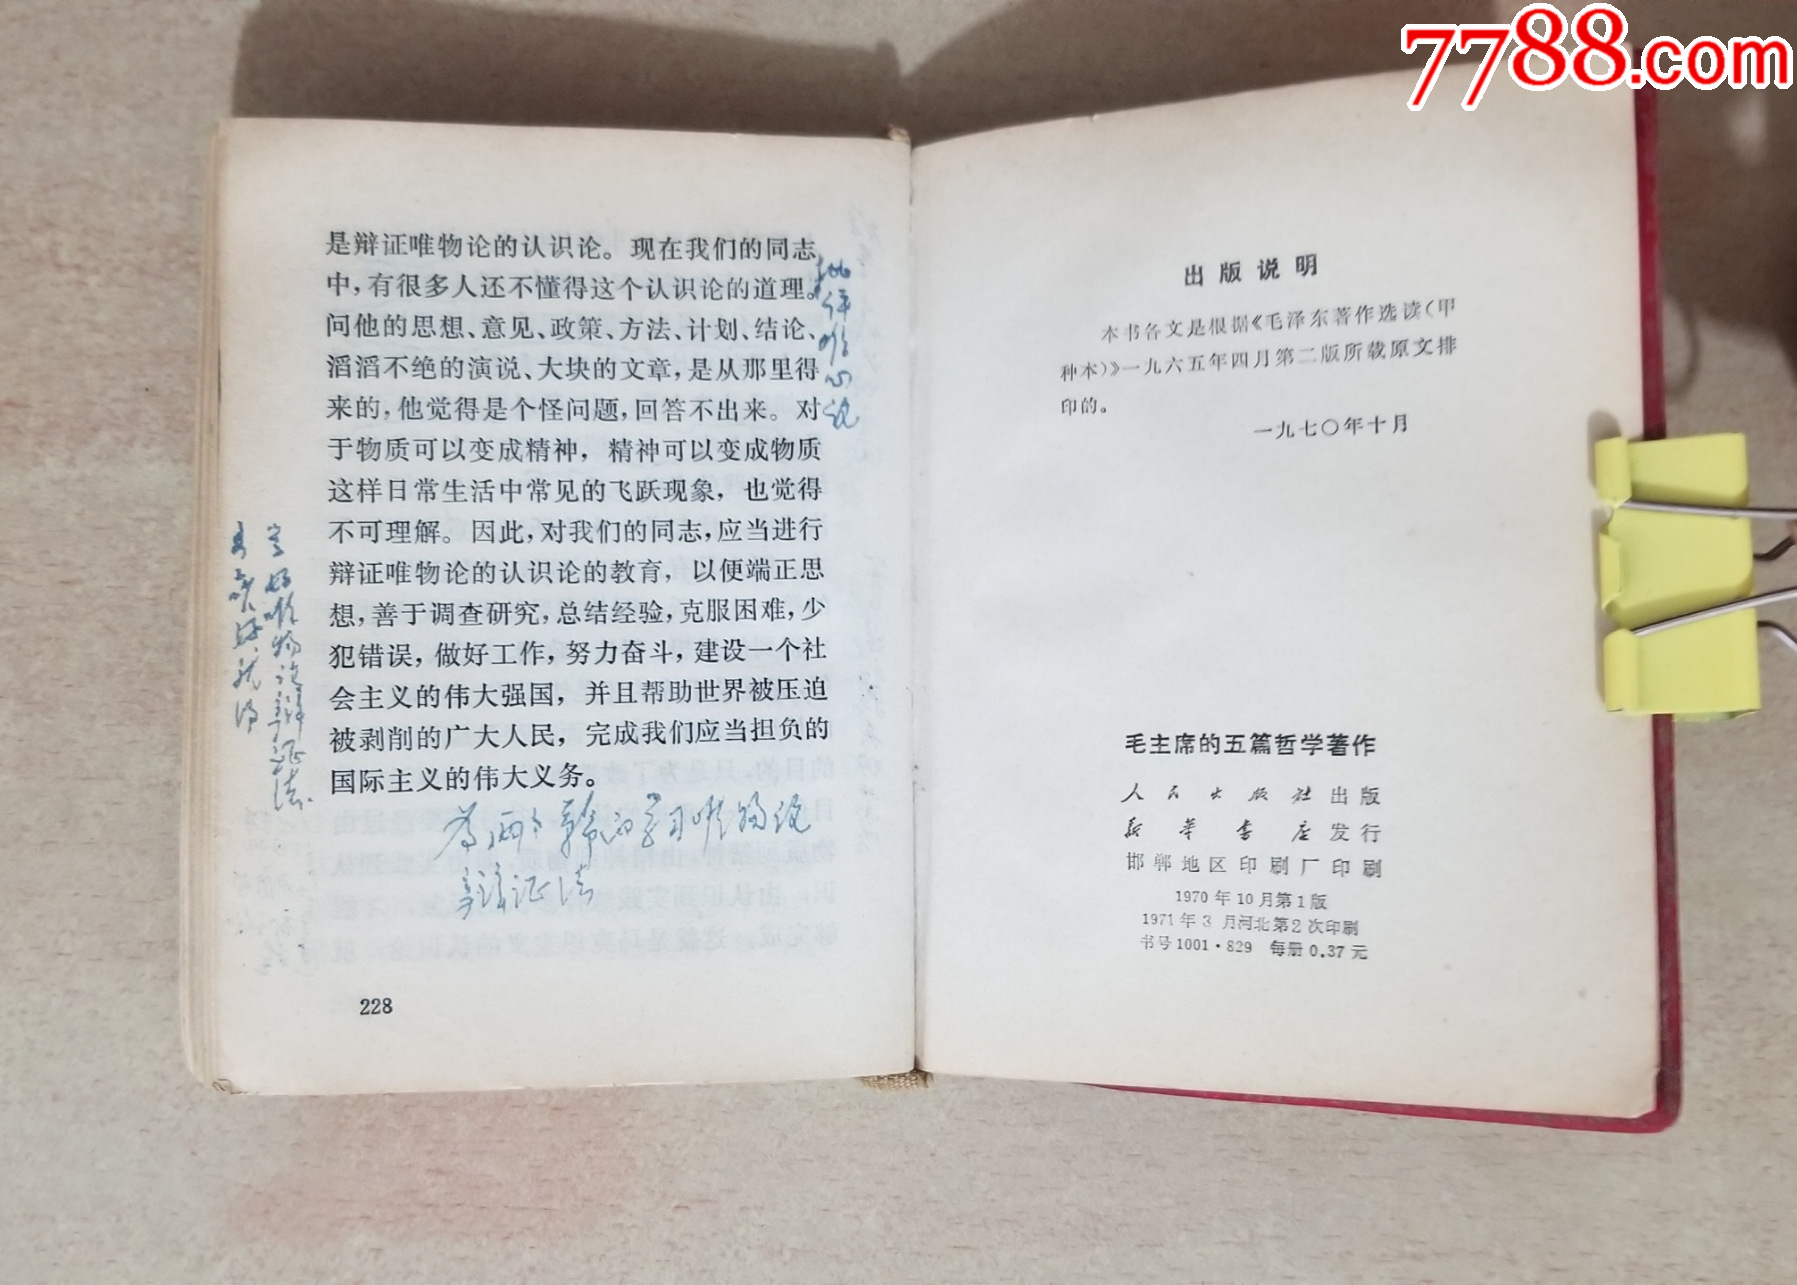 7788.com
是辩证唯物论的认识论。现在我们的同志
中，有很多人还不懂得这个认识论的道理。
问他的思想、意见、政策、方法、计划、结论、
滔滔不绝的演说、大块的文章，是从那里得
来的，他觉得是个怪问题，回答不出来。对
于物质可以变成精神，精神可以变成物质
这样日常生活中常见的飞跃现象，也觉得
不可理解。因此，对我们的同志，应当进行
辩证唯物论的认识论的教育，以便端正思
想，善于调查研究，总结经验，克服困难，少
犯错误，做好工作，努力奋斗，建设一个社
会主义的伟大强国，并且帮助世界被压迫
被剥削的广大人民，完成我们应当担负的
国际主义的伟大义务。
批评唯心论
学好唯物论辩证法
学习唯物论
辩证法
228
出版说明
本书各文是根据《毛泽东著作选读（甲
种本）》一九六五年四月第二版所载原文排
印的。
一九七〇年十月
毛主席的五篇哲学著作
人民出版社出版
新华书店发行
邯郸地区印刷厂印刷
1970年10月第1版
1971年3月河北第2次印刷
书号1001·829 每册0.37元